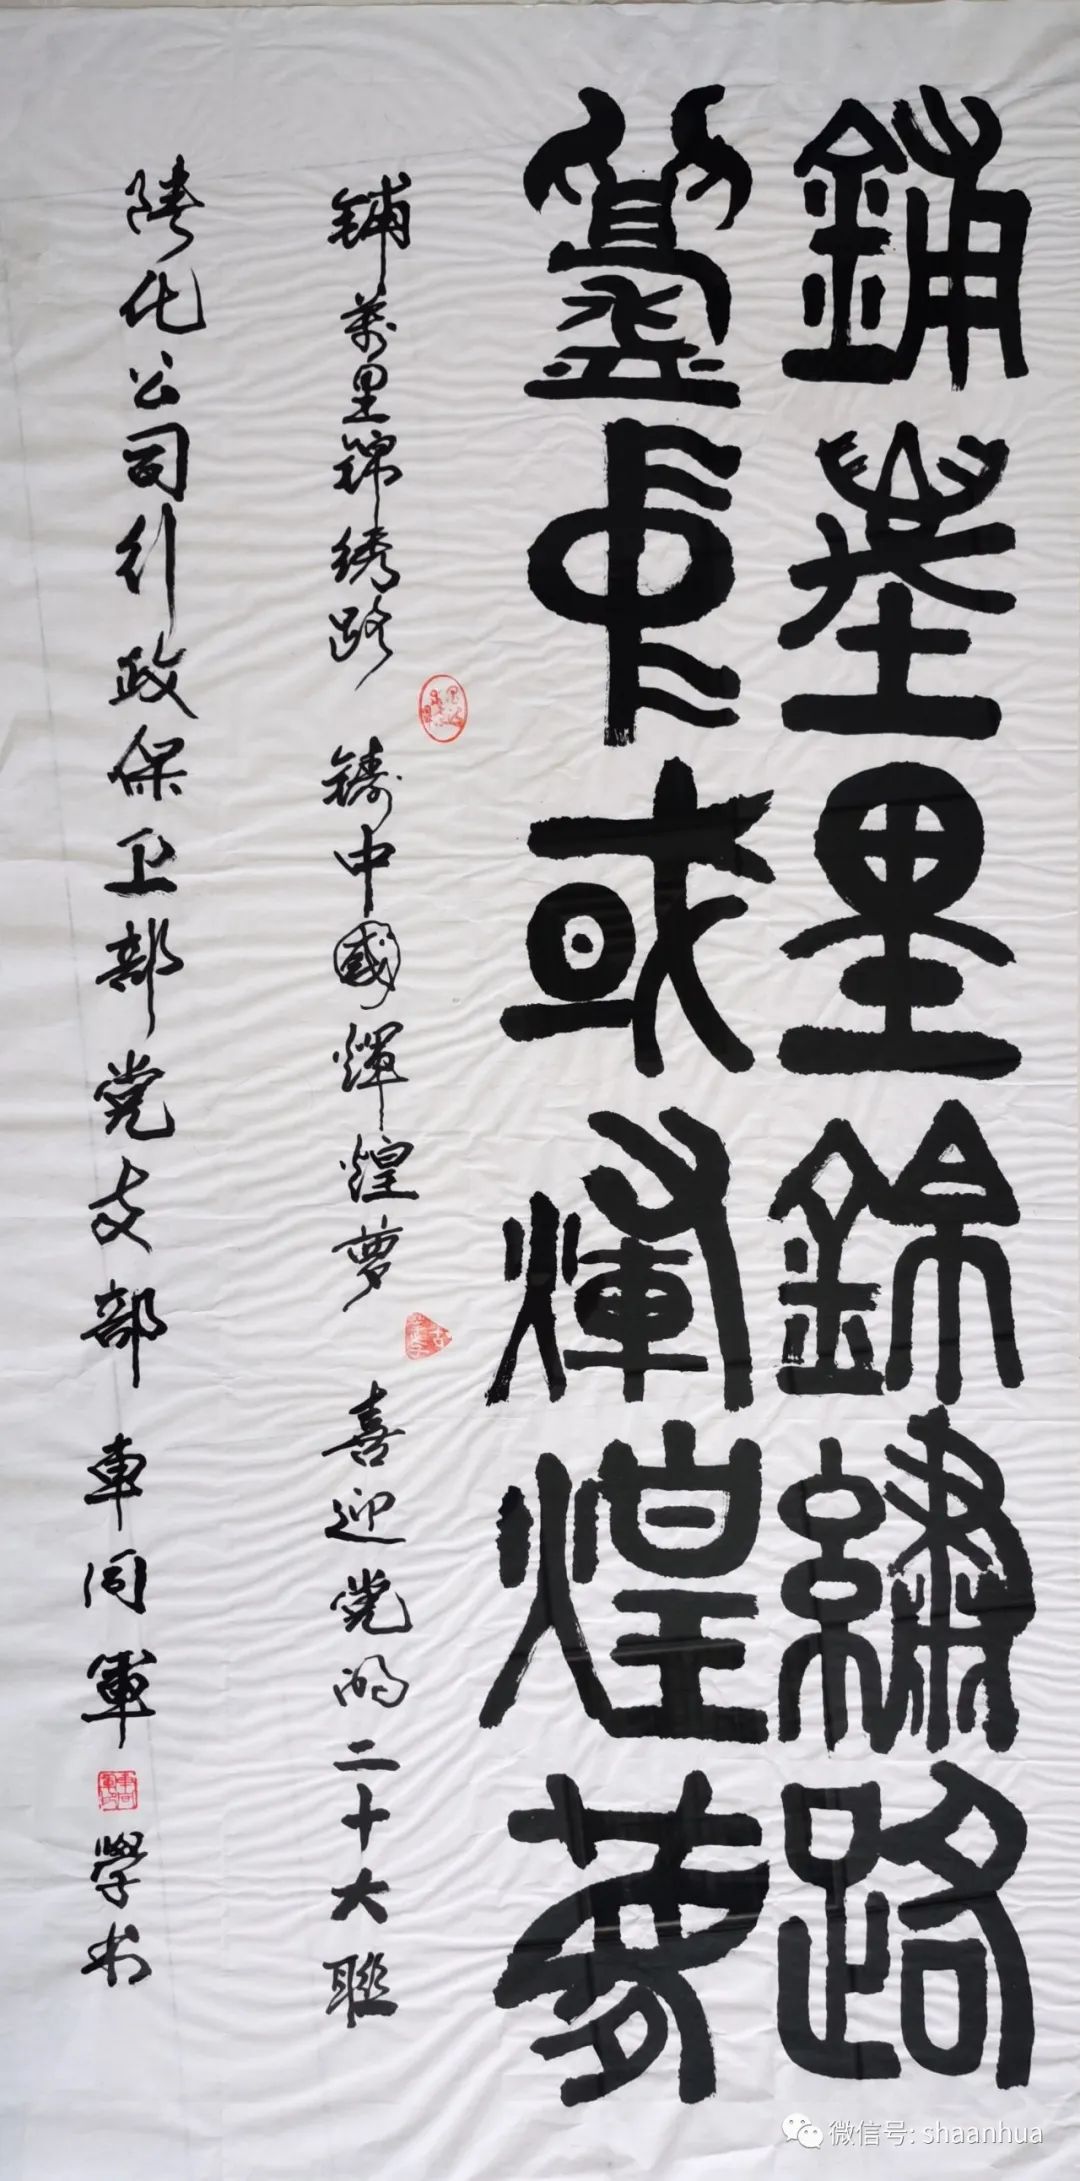 鋪萬里錦繡路
鑄中或煇煌夢
铺萬里锦绣路 铸中國煇煌夢 喜迎党的二十大聯
陕化公司行政保卫部党支部 車同軍 學书
微信号: shaanhua